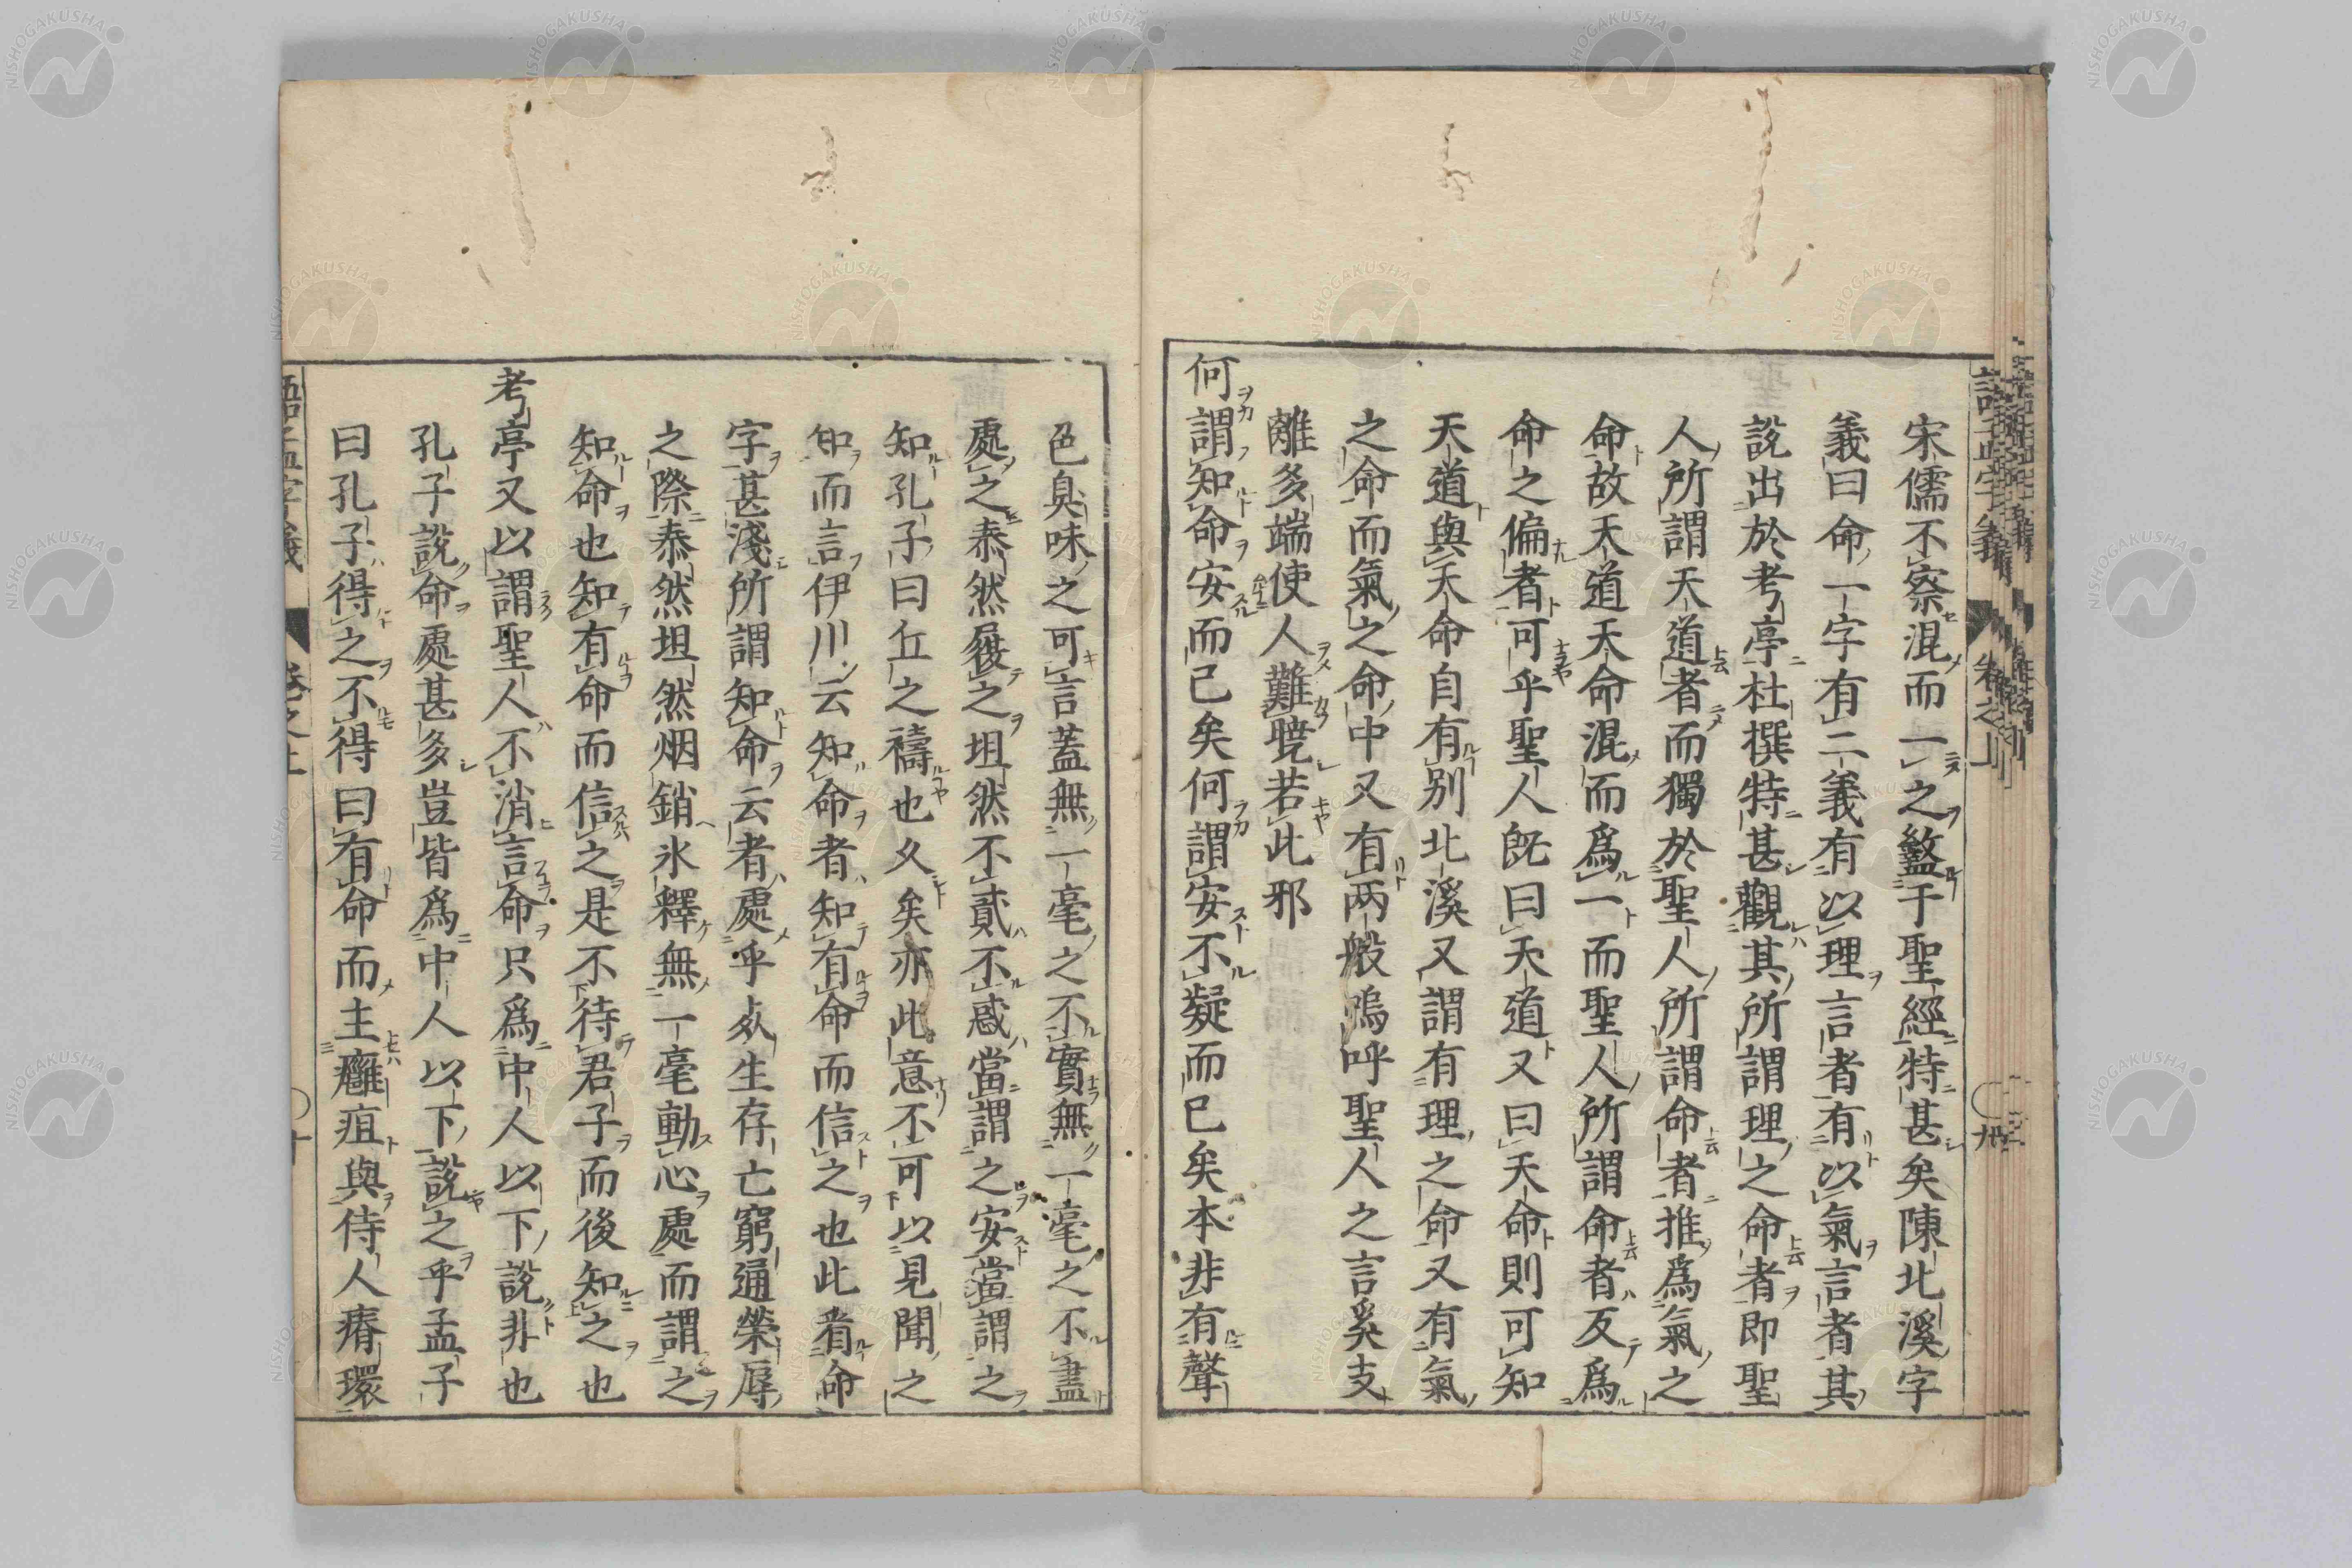 宋儒不察混而一之盭于聖經特甚矣陳北溪字
義曰命一字有二義有以理言者有以氣言者其
說出於考亭杜撰特甚觀其所謂理之命者即聖
人所謂天道者而獨於聖人所謂命者推爲氣之
命故天道天命混而爲一而聖人所謂命者反爲
命之偏者可乎聖人既曰天道又曰天命則可知
天道與天命自有別北溪又謂有理之命又有氣
之命而氣之命中又有兩般嗚呼聖人之言奚支
離多端使人難曉若此邪
何謂知命安而已矣何謂安不疑而已矣本非有聲
色臭味之可言蓋無一毫之不實無一毫之不盡
處之泰然履之坦然不貳不惑當謂之安當謂之
知孔子曰丘之禱也久矣亦此意不可以見聞之
知而言伊川云知命者知有命而信之也此看命
字甚淺所謂知命云者處乎死生存亡窮通榮辱
之際泰然坦然烟銷氷釋無一毫動心處而謂之
知命也知有命而信之是不待君子而後知之也
考亭又以謂聖人不消言命只爲中人以下說非也
孔子說命處甚多豈皆爲中人以下說之乎孟子
曰孔子得之不得曰有命而主癰疽與侍人瘠環
語孟字義 卷之上 十
NISHOGAKUSHA